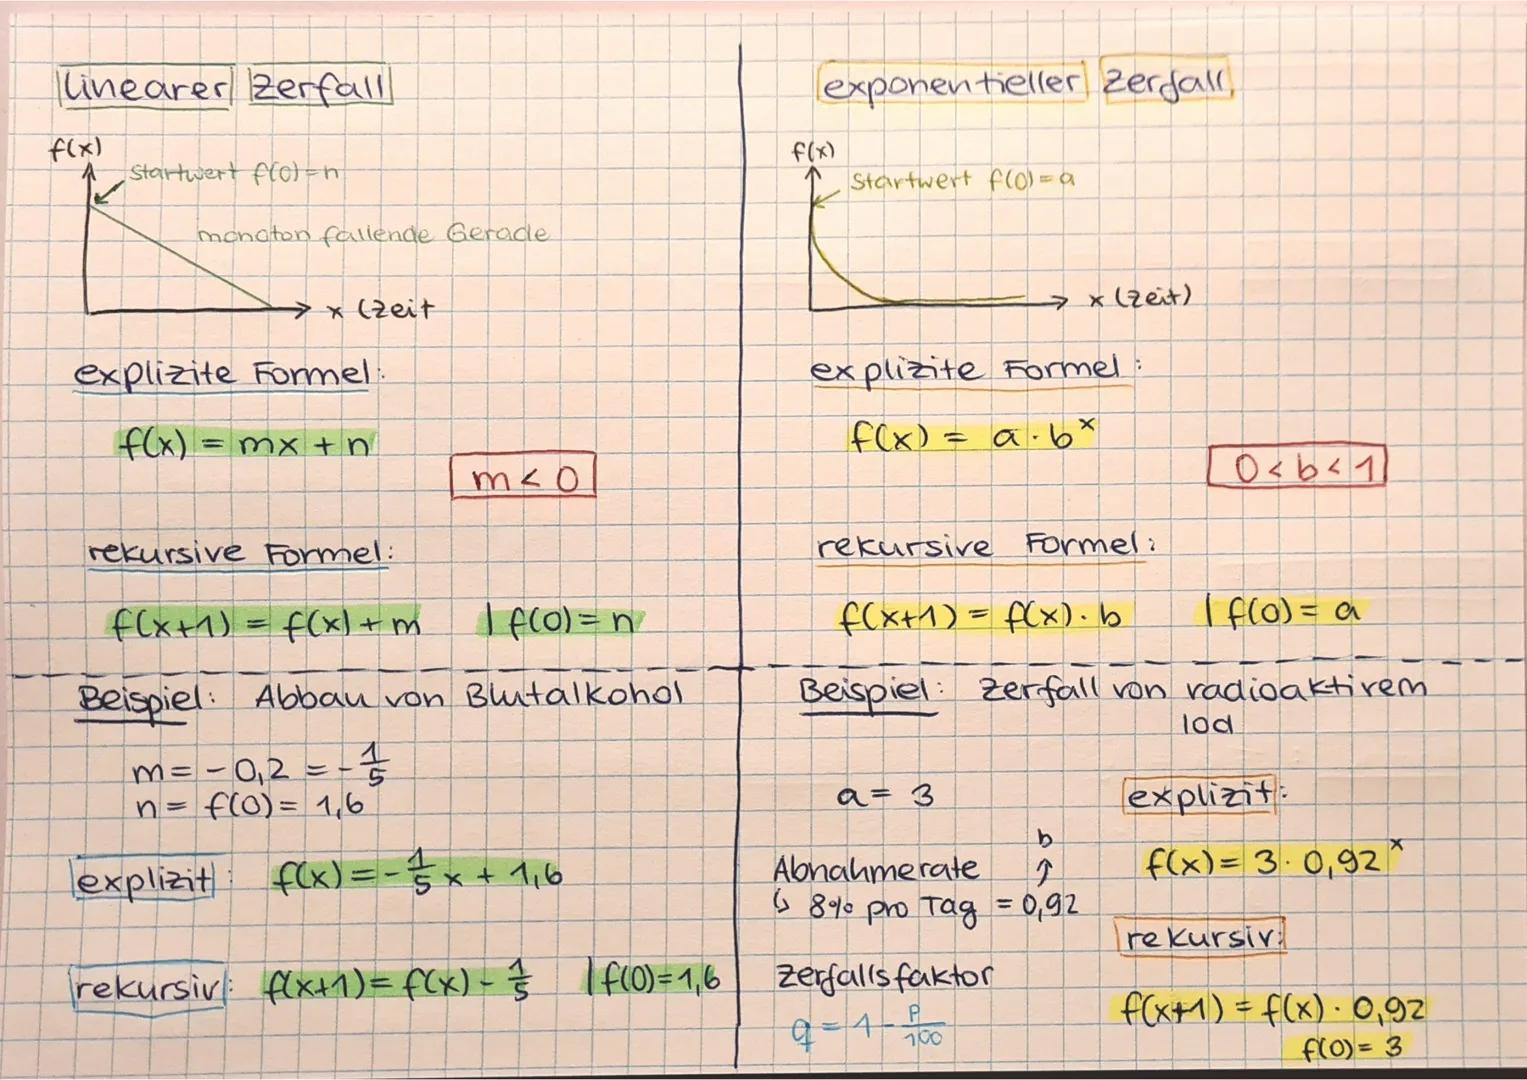 linearer Zerfall
f(x)
Startwert f(0)=n
monoton fallende Gerade
x (Zeit
explizite Formel:
f(x) = mx + n
m < 0
rekursive Formel:
f(x+1) = f(x) + m | f(0) = n
Beispiel: Abbau von Blutalkohol
m = -0,2 = -1/5
n = f(0) = 1,6
explizit: f(x) = -1/5 x + 1,6
rekursiv: f(x+1) = f(x) - 1/5 | f(0)=1,6
exponentieller Zerfall
f(x)
Startwert f(0) = a
x (Zeit)
explizite Formel:
f(x) = a · b^x
0 < b < 1
rekursive Formel:
f(x+1) = f(x) · b | f(0) = a
Beispiel: Zerfall von radioaktivem
Iod
a = 3
b
Abnahmerate ↑
↳ 8% pro Tag = 0,92
Zerfallsfaktor
q = 1 - p/100
explizit:
f(x) = 3 · 0,92^x
rekursiv:
f(x+1) = f(x) · 0,92
f(0) = 3